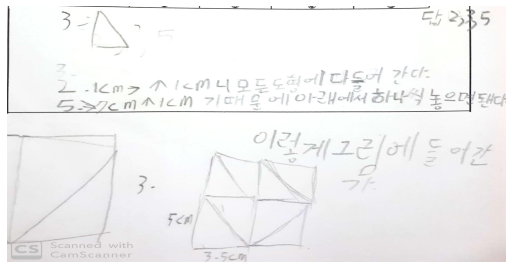 3= 5
답 2,3,5
3.
2. 1cm→ ↑1cm 니 모든도형에 다들어 간다.
5→ 7cm ↑1cm 기때문에 아래에서 하나씩 놓으면 됀다
이렇게그림에 들어간
3.
5cm
3.5cm
CS Scanned with CamScanner